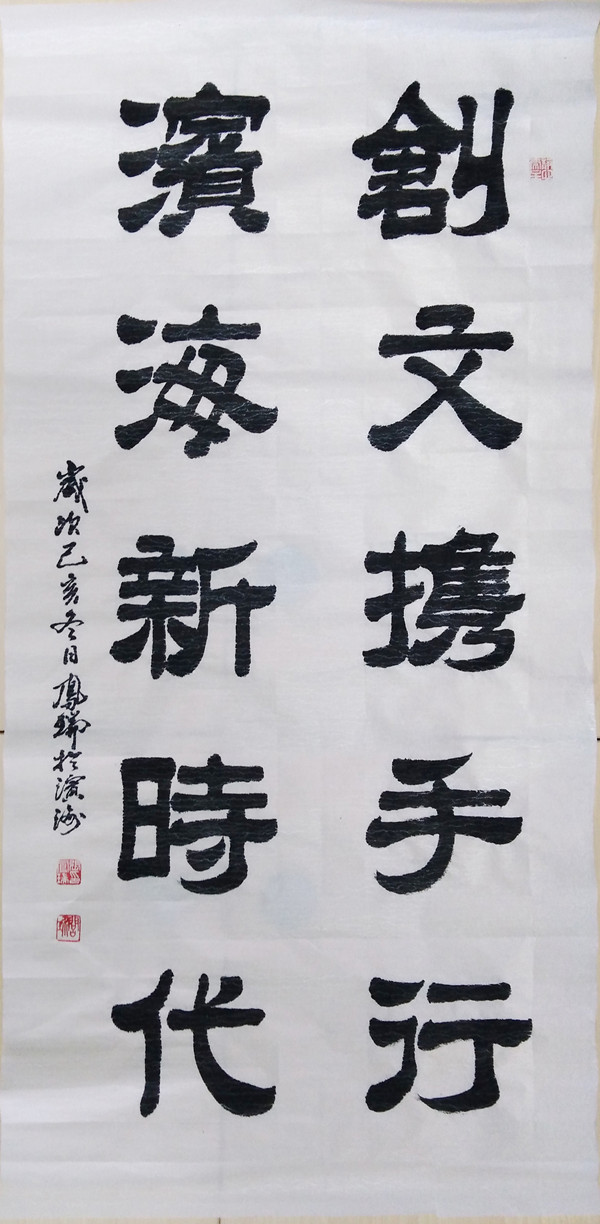 創文攜手行
濱海新時代
歲次己亥冬日鳳瑞於濱海